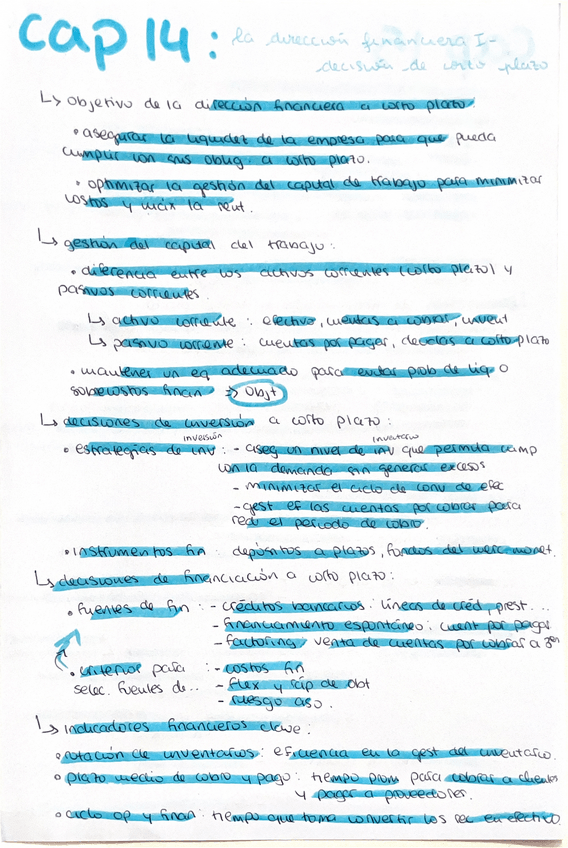 cap 14: la dirección financiera I-
decisión de corto plazo
↳ objetivo de la dirección financiera a corto plazo
• asegurar la liquidez de la empresa para que pueda
cumplir con sus oblig. a corto plazo.
• optimizar la gestión del capital de trabajo para minimizar
costos y max la rent.
↳ gestión del capital del trabajo:
• diferencia entre los activos corrientes (corto plazo) y
pasivos corrientes.
↳ activo corriente: efectivo, cuentas a cobrar, invent
↳ pasivo corriente: cuentas por pagar, deudas a corto plazo
• mantener un eq adecuado para evitar prob de liq o
sobrecostos finan => objt
↳ decisiones de inversión a corto plazo:
inversión inventario
• estrategias de inv: - aseg un nivel de inv que permita cump
con la demanda sin generar excesos
- minimizar el ciclo de conv de efec
- gest ef las cuentas por cobrar para
red el periodo de cobro.
• instrumentos fin: depósitos a plazos, fondos del merc monet.
↳ decisiones de financiación a corto plazo:
• fuentes de fin: - créditos bancarios: líneas de créd, prest...
- financiamiento espontáneo: cuent por pagar
- factoring: venta de cuentas por cobrar a 3ros
• criterior para : - costos fin
selec. fuentes de.. - flex y ráp de obt
- riesgo aso.
↳ indicadores financieros clave:
• rotación de inventarios: eficiencia en la gest del inventario.
• plazo medio de cobro y pago: tiempo prom para cobrar a clientes
y pagar a proveedores.
• ciclo op y finan: tiempo que toma convertir los rec en efectivo